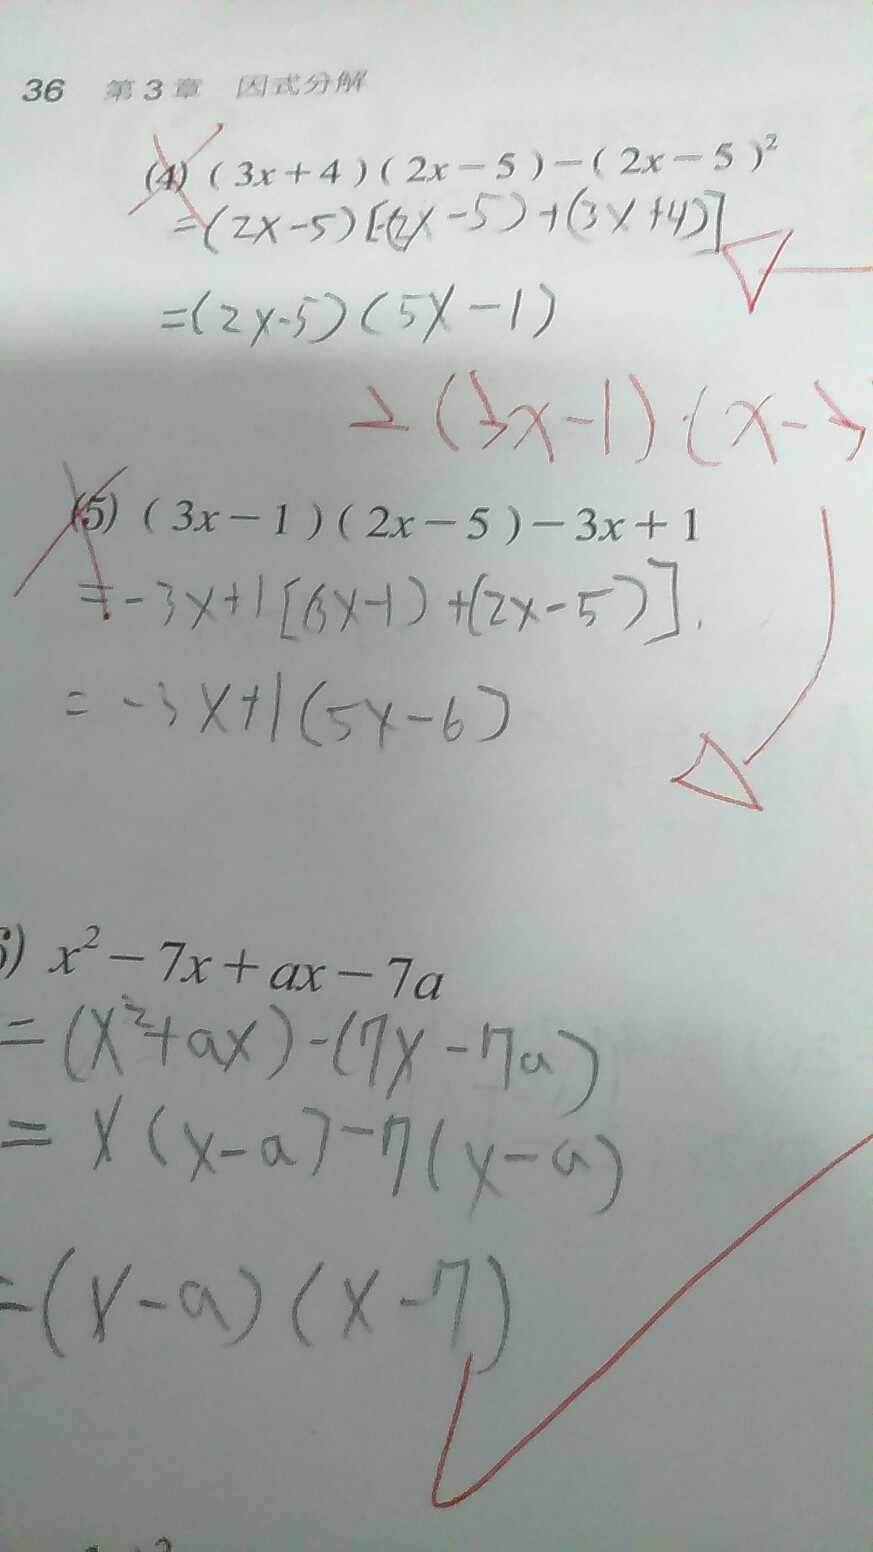 36 第3章 因式分解
(4) (3x+4)(2x-5)-(2x-5)²
=(2x-5)[-(2x-5)+(3x+4)]
=(2x-5)(5x-1)
2(3x-1)(x-3
(5) (3x-1)(2x-5)-3x+1
=-3x+1[(3x-1)+(2x-5)].
=-3x+1(5x-6)
) x²-7x+ax-7a
=(x²+ax)-(7x-7a)
=x(x-a)-7(x-a)
=(x-a)(x-7)